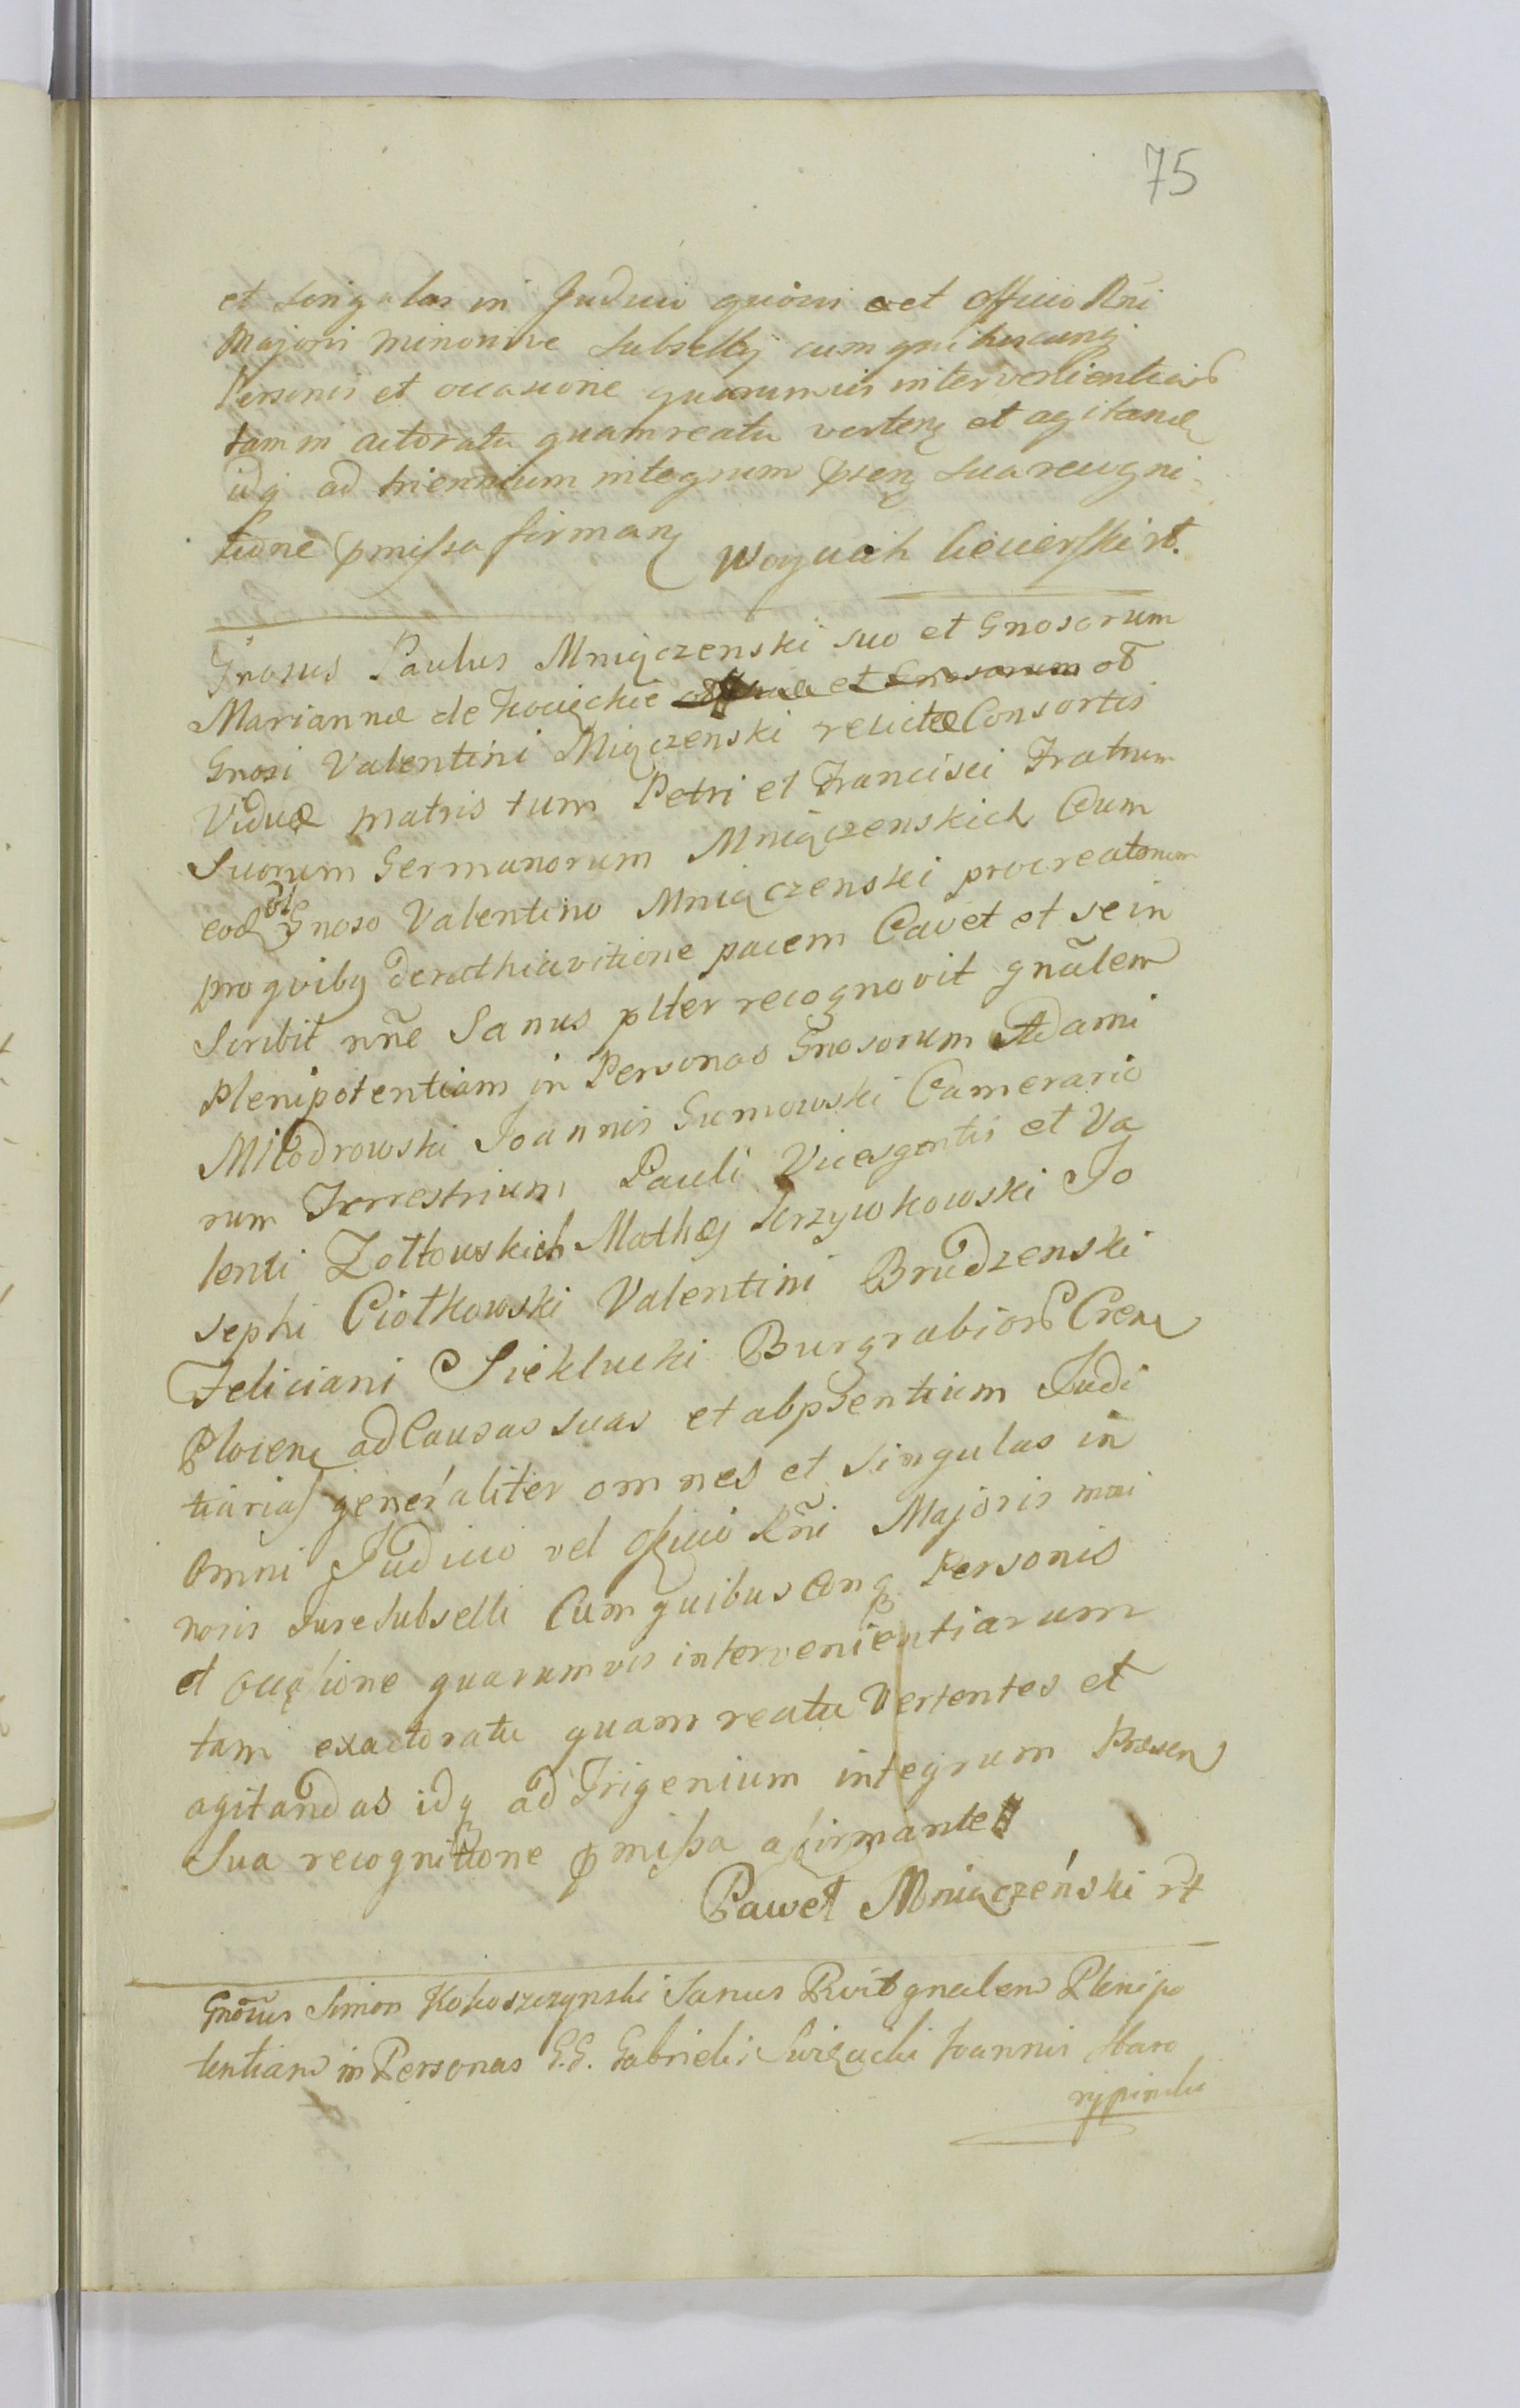 75
et singulas in Judicio quovis aet officio Rni
Majoris minorisve Subsellij cum quibuscunq
Personis et occasione quarumvis intervenientiarb
tam in actoratu quam reatu verten et agitand
idq ad triennium integrum psen sua recogni-
tione pmissa firman Woyciech Ciecierski rt.
Gnosus Paulus Mniączenski suo et Gnosorum
Mariannæ de et Gnosorum ob
Gnosi Valentini Miączenski relictæ Consortis
Viduæ matris tum Petri et Francisci Fratrum
Suorum Germanorum Mniączenskich Cum
eod ol Gnoso Valentino Mniączenski procreatorum
pro quibq derathiavitione pacem Cavet et se in
Scribit nñe Sanus plter recognovit gnãlem
Plenipotentiam in Personas Gnosorum Adami
Miłodrowski Joannis Gumowski Camerario
rum Terrestrium Pauli Vicesgentis et Va
lenti Zołtowskich Mathæj Krzywkowski Jo
sephi Ciołkowski Valentini Brudzenski
Feliciani Sieklucki Burgrabiorb Cren
Plocen ad Causas suas et abpsentium Judi
tiarias generaliter omnes et singulas in
Omni Judicio vel officio Rñi Majoris mi
noris Subselli Cum quibus Conq Personis
et occasione quarumvis intervenientiarum
tam exactoratu quam reatu Vertentes et
agitandas idq ad Trigenium integrum Præsen
Sua recognitione pmissa afirmante
Paweł Mniączeński rt
Gnosus Simon Kokoszczynski Sanus Rvit gnalem Plenipo
tentiam in Personas G.G. Gabrielis Swięcicki Joannis Staro
rypinski